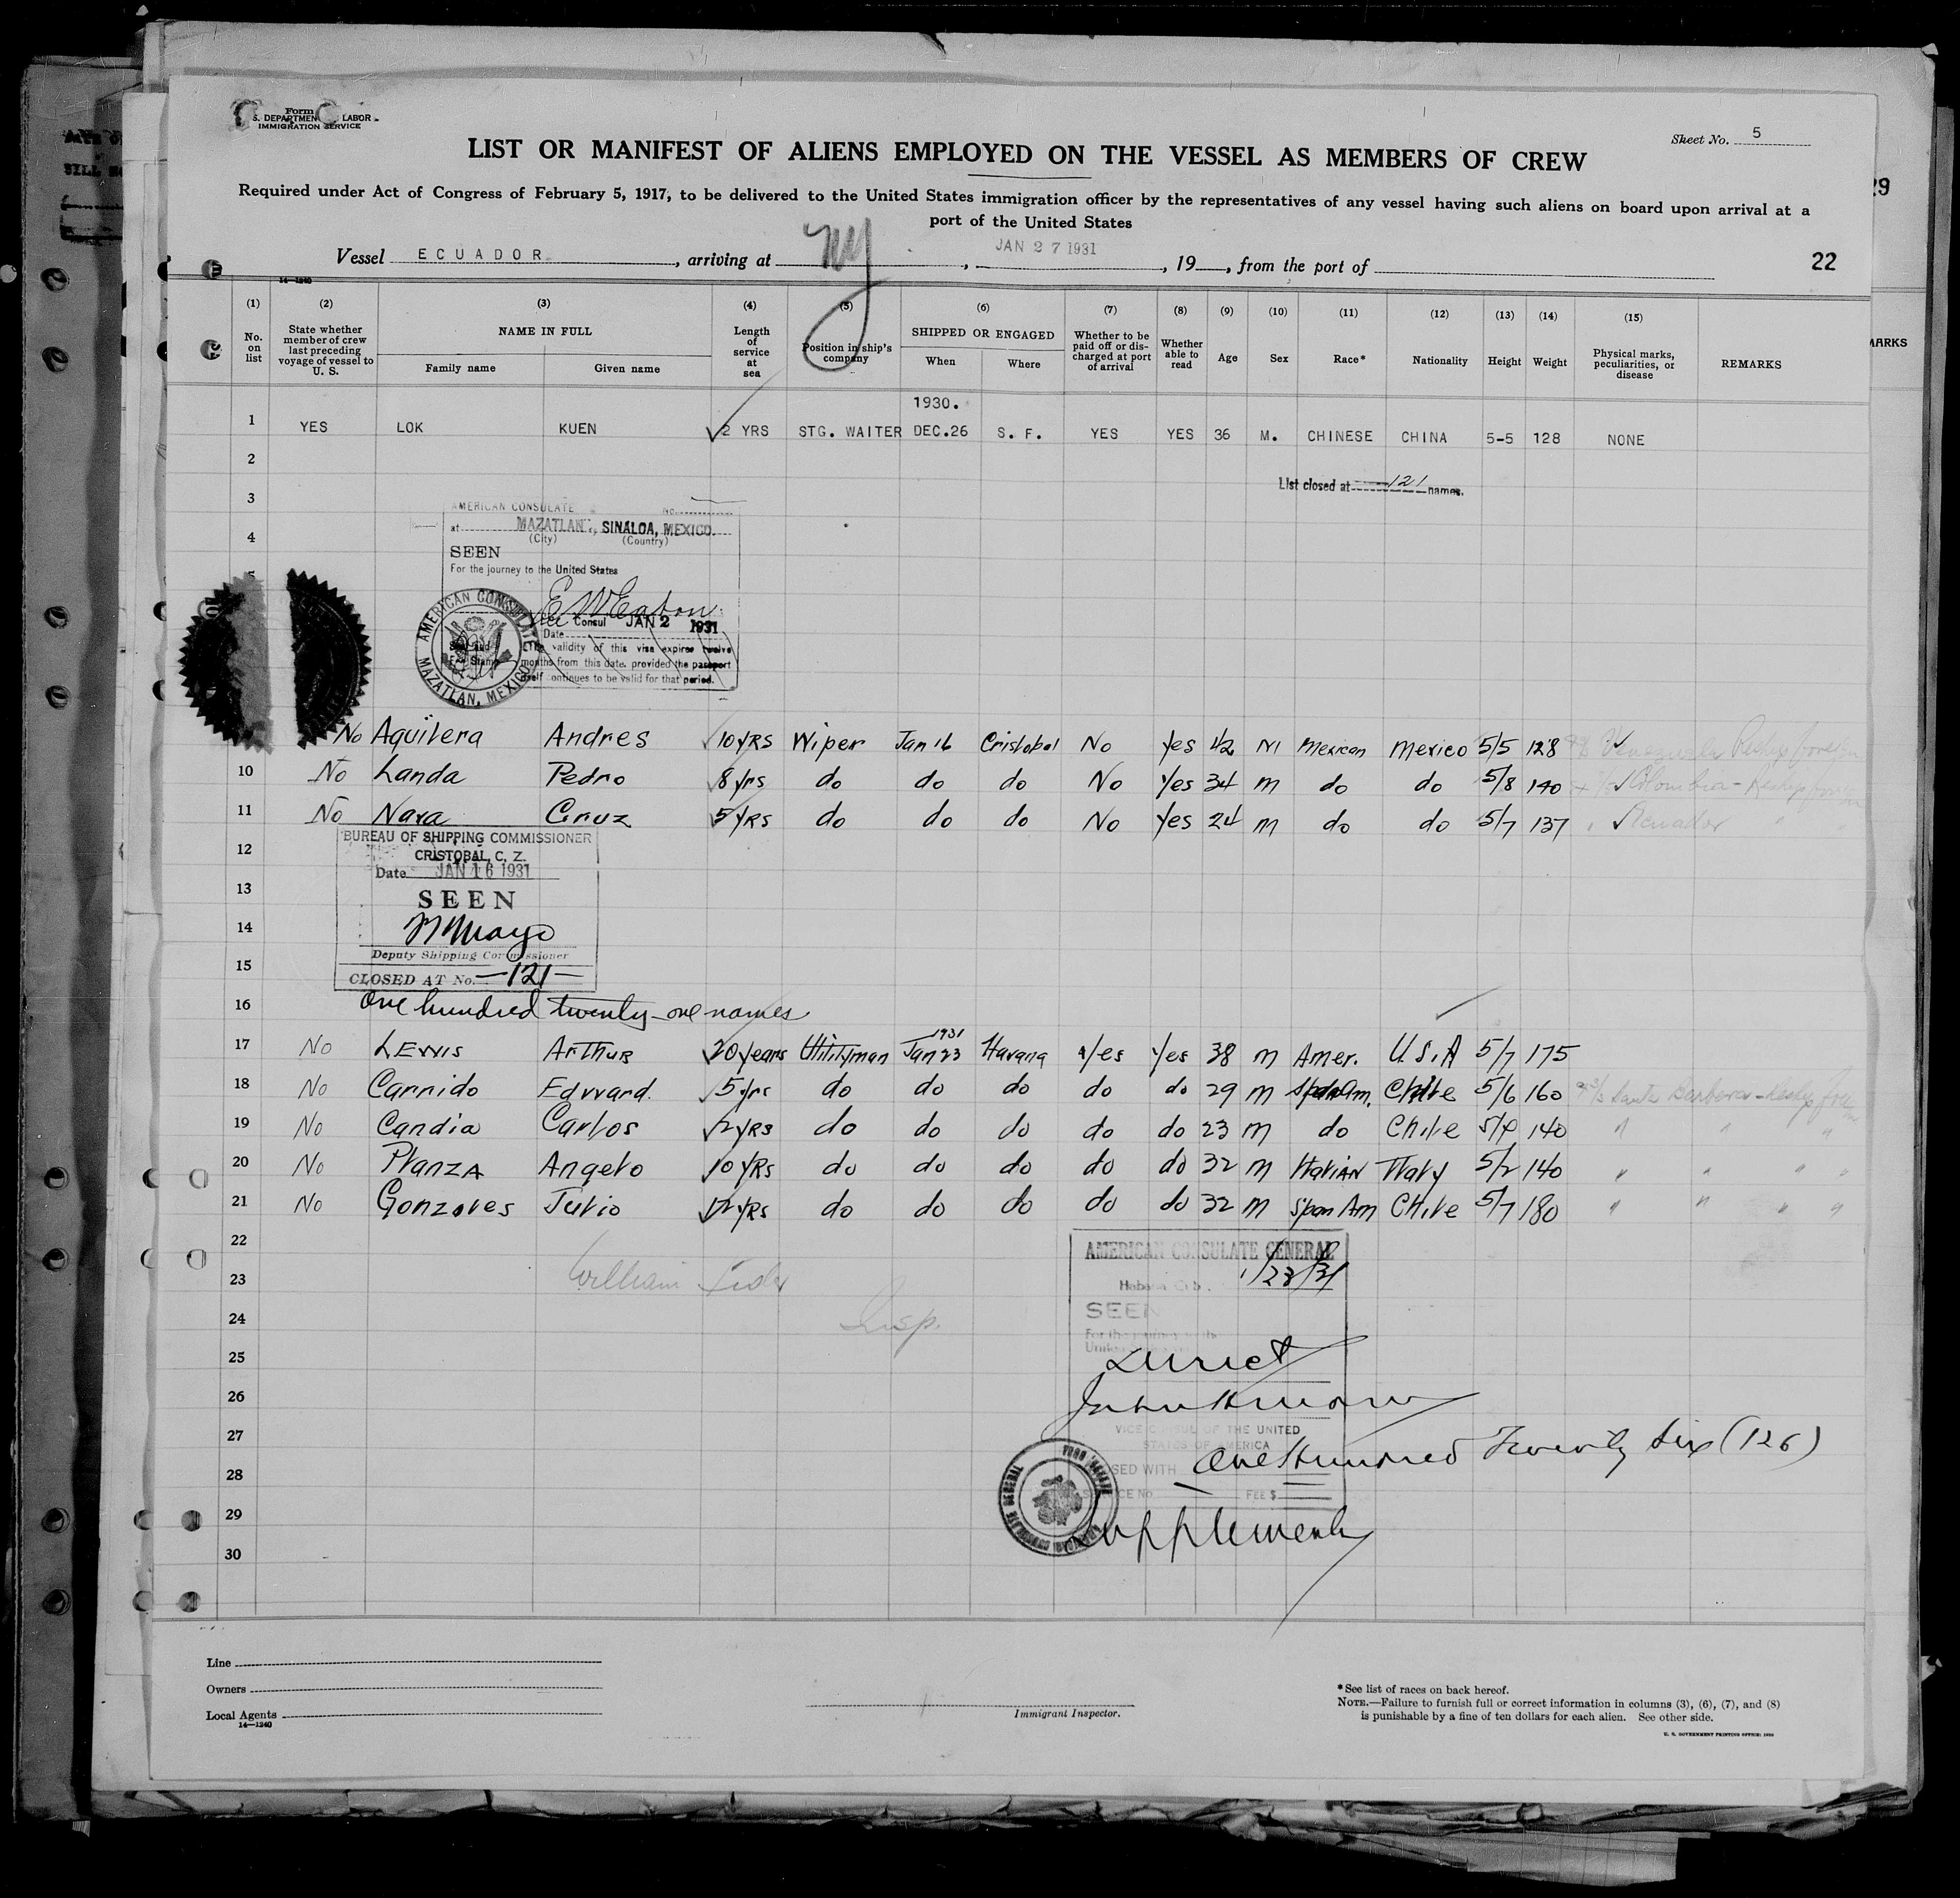 Form
S. DEPARTMEN LABOR
IMMIGRATION SERVICE
Sheet No. 5
LIST OR MANIFEST OF ALIENS EMPLOYED ON THE VESSEL AS MEMBERS OF CREW
Required under Act of Congress of February 5, 1917, to be delivered to the United States immigration officer by the representatives of any vessel having such aliens on board upon arrival at a
port of the United States
29
Vessel ECUADOR, arriving at NY, JAN 27 1931, 19 , from the port of
22
14—1240
(1) (2) (3) (4) (5) (6) (7) (8) (9) (10) (11) (12) (13) (14) (15)
No. on list
State whether member of crew last preceding voyage of vessel to U. S.
NAME IN FULL
Family name Given name
Length of service at sea
Position in ship's company
SHIPPED OR ENGAGED
When Where
Whether to be paid off or discharged at port of arrival
Whether able to read
Age
Sex
Race*
Nationality
Height
Weight
Physical marks, peculiarities, or disease
REMARKS
MARKS
1930.
1 YES LOK KUEN 2 YRS STG. WAITER DEC.26 S. F. YES YES 36 M. CHINESE CHINA 5-5 128 NONE
2
List closed at 121 names.
3
AMERICAN CONSULATE No.
at MAZATLAN, SINALOA, MEXICO.
(City) (Country)
4
SEEN
For the journey to the United States
5
E W Eaton
Consul JAN 2 1931
Date
The validity of this visa expires twelve
months from this date, provided the passport
itself continues to be valid for that period.
AMERICAN CONSULATE
MAZATLAN, MEXICO
No Aguilera Andres 10 YRS Wiper Jan 16 Cristobal No Yes 42 M Mexican Mexico 5/5 128 Venezuela Reship foreign
10 No Landa Pedro 8 yrs do do do No Yes 34 m do do 5/8 140 Colombia - Reship foreign
11 No Nava Cruz 5 YRS do do do No Yes 24 m do do 5/7 137 " Ecuador " "
BUREAU OF SHIPPING COMMISSIONER
12
CRISTOBAL, C. Z.
Date JAN 16 1931
13
SEEN
14
M Mayo
Deputy Shipping Commissioner
15
CLOSED AT No. —121—
16 One hundred twenty-one names
1931
17 No Lewis Arthur 20 years Utilityman Jan 23 Havana Yes Yes 38 m Amer. U.S.A 5/7 175
18 No Carrido Edward. 5 yrs do do do do do 29 m Span Am. Chile 5/6 160 Santa Barbara - Reship foreign
19 No Candia Carlos 2 YRS do do do do do 23 m do Chile 5/4 140 " " "
20 No Planza Angelo 10 YRS do do do do do 32 m Italian Italy 5/2 140 " " " "
21 No Gonzales Julio 12 YRS do do do do do 32 m Span Am Chile 5/7 180 " " " "
22
AMERICAN CONSULATE GENERAL
23
William
1/23/31
24
Insp.
SEEN
For the journey to the
United
25
Direct
26
27
VICE CONSUL OF THE UNITED
STATES OF AMERICA
28
SED WITH One Hundred Twenty Six (126)
FEE $
29
Supplement
30
Line
Owners
Local Agents
14—1240
Immigrant Inspector.
*See list of races on back hereof.
NOTE.—Failure to furnish full or correct information in columns (3), (6), (7), and (8)
is punishable by a fine of ten dollars for each alien. See other side.